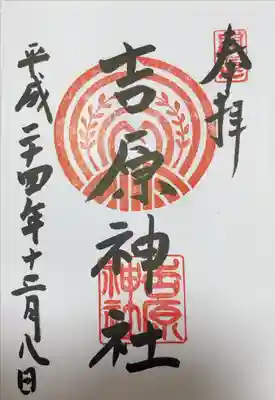 奉拝
吉原神社
平成二十四年十二月八日
吉原
神社